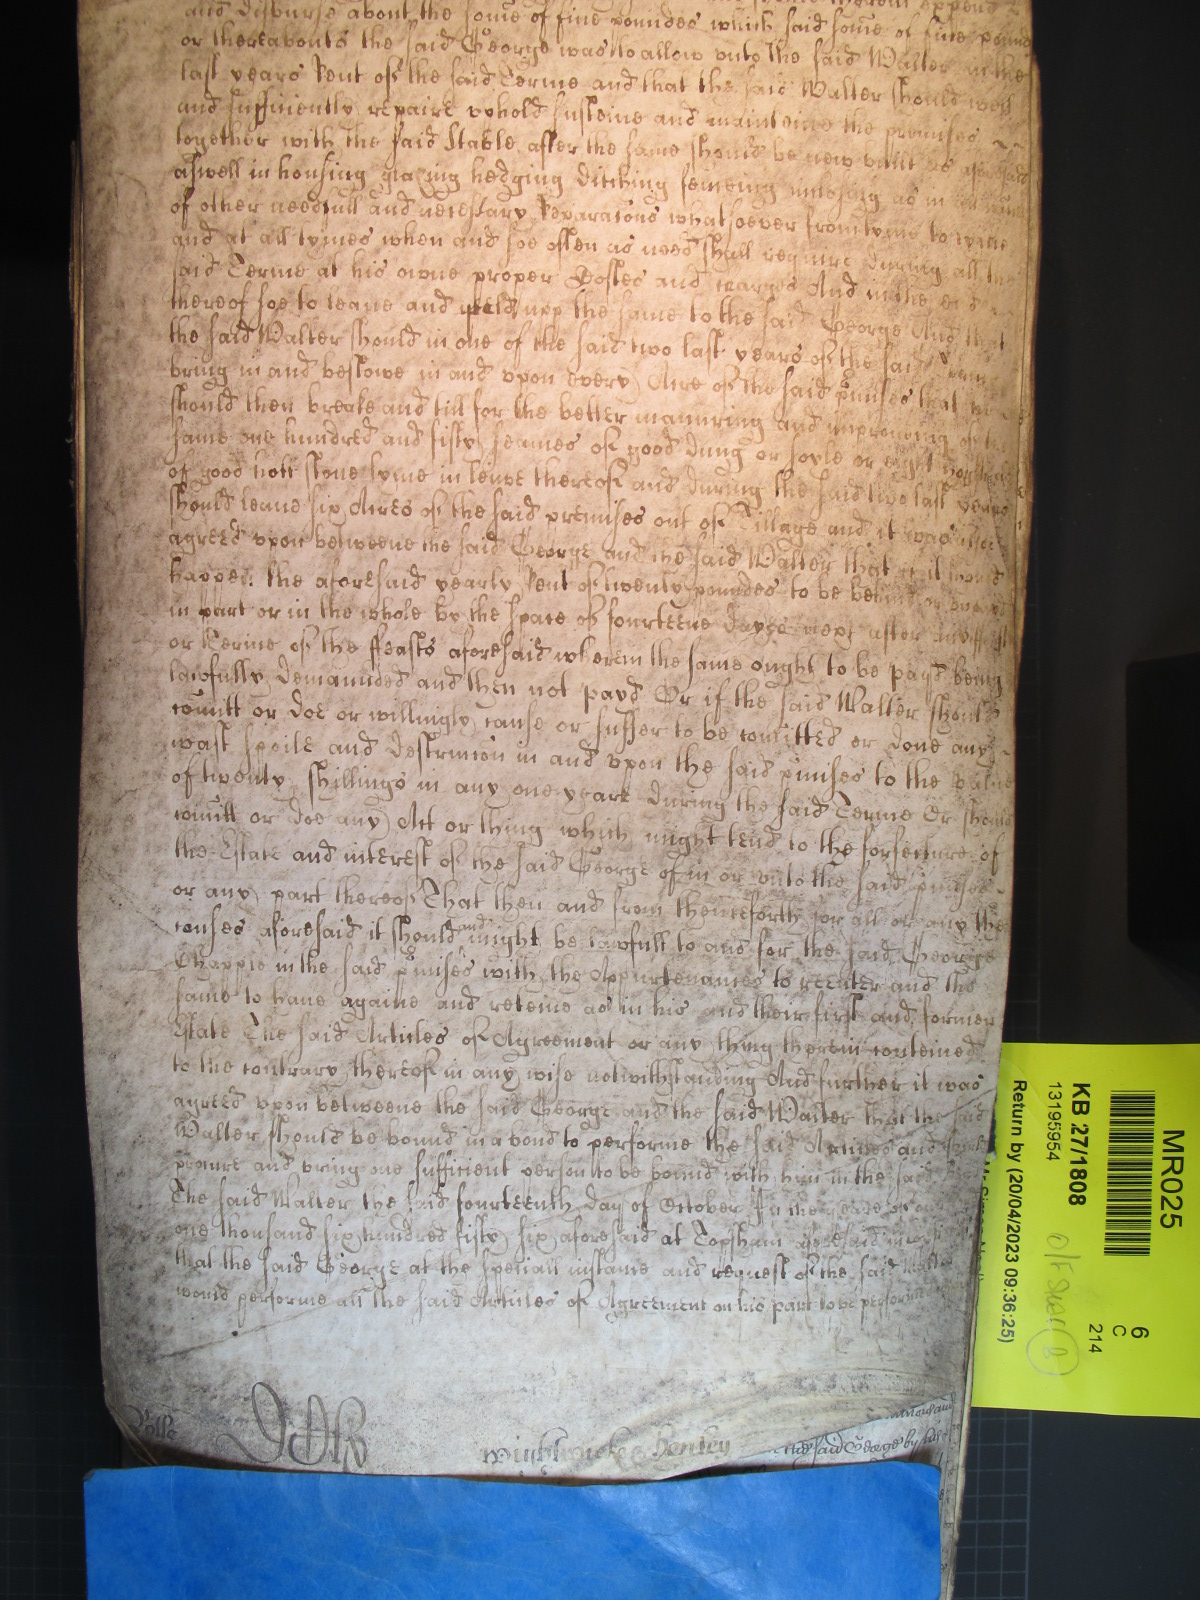 and disburse about the some of fiue poundes which said some of fiue pound
or thereabouts the said George was to allow vnto the said Walter in the
last years Rent of the said Terme and that the said Walter should well
and sufficiently repaire vphold susteine and mainteine the premises
together with the said stable after the same should be new built as aforesaid
aswell in housing glazing hedging ditching fenceing inclosing as in all
of other needfull and necessary Reparacons whatsoever from tyme to tyme
and at all tymes when and soe often as need shall require during all the
said Terme at his owne proper Costes and charges And in the end
thereof soe to leaue and yeild upp the same to the said George And that
the said Walter should in one of the said two last years of the said Terme
bring in and bestowe in and vpon every Acre of the said pmises that he
should then breake and till for the better manuring and improouing of the
same one hundred and fifty seames of good dung or soyle or eight
of good hott stone lyme in leiue thereof and during the said two last years
should leaue six Acres of the said premises out of Tillage and it was
agreed vpon betweene the said George and the said Walter that if it should
happen the aforesaid yearly Rent of twenty poundes to be behind or
in part or in the whole by the space of fourteene dayes next after any
or Terme of the ffeasts aforesaid wherein the same ought to be payd being
lawfully demaunded and then not payd Or if the said Walter should
comitt or doe or willingly cause or suffer to be comitted or done any
wast spoile and destrucion in and vpon the said pmises to the value
of twenty shillings in any one yeare during the said Terme Or should
comitt or doe any Act or thing which might tend to the forfeiture of
the Estate and interest of the said George of in or vnto the said pmises
or any part thereof That then and from thenceforth for all or any the
causes aforesaid it should and might be lawfull to and for the said George
Chappie in the said pmises with the Appurtenances to reenter and the
same to haue againe and reteine as in his and their first and former
Estate The said Articles of Agreement or any thing therein conteined
to the contrary thereof in any wise notwithstanding And further it was
agreed vpon betweene the said George and the said Walter that the said
Walter should be bound in a bond to performe the said and
procure and bring one sufficient person to be bound with him in the said
The said Walter the said fourteenth day of October In the
one thousand six hundred fifty six aforesaid at Topsham aforesaid
that the said George at the speciall instance and request of the said Walter
would performe all the said Articles of Agreement on his part to be performed
Rolle
the said George by
MR025
6
C
214
KB 27/1808
13195954
Return by (20/04/2023 09:36:25)